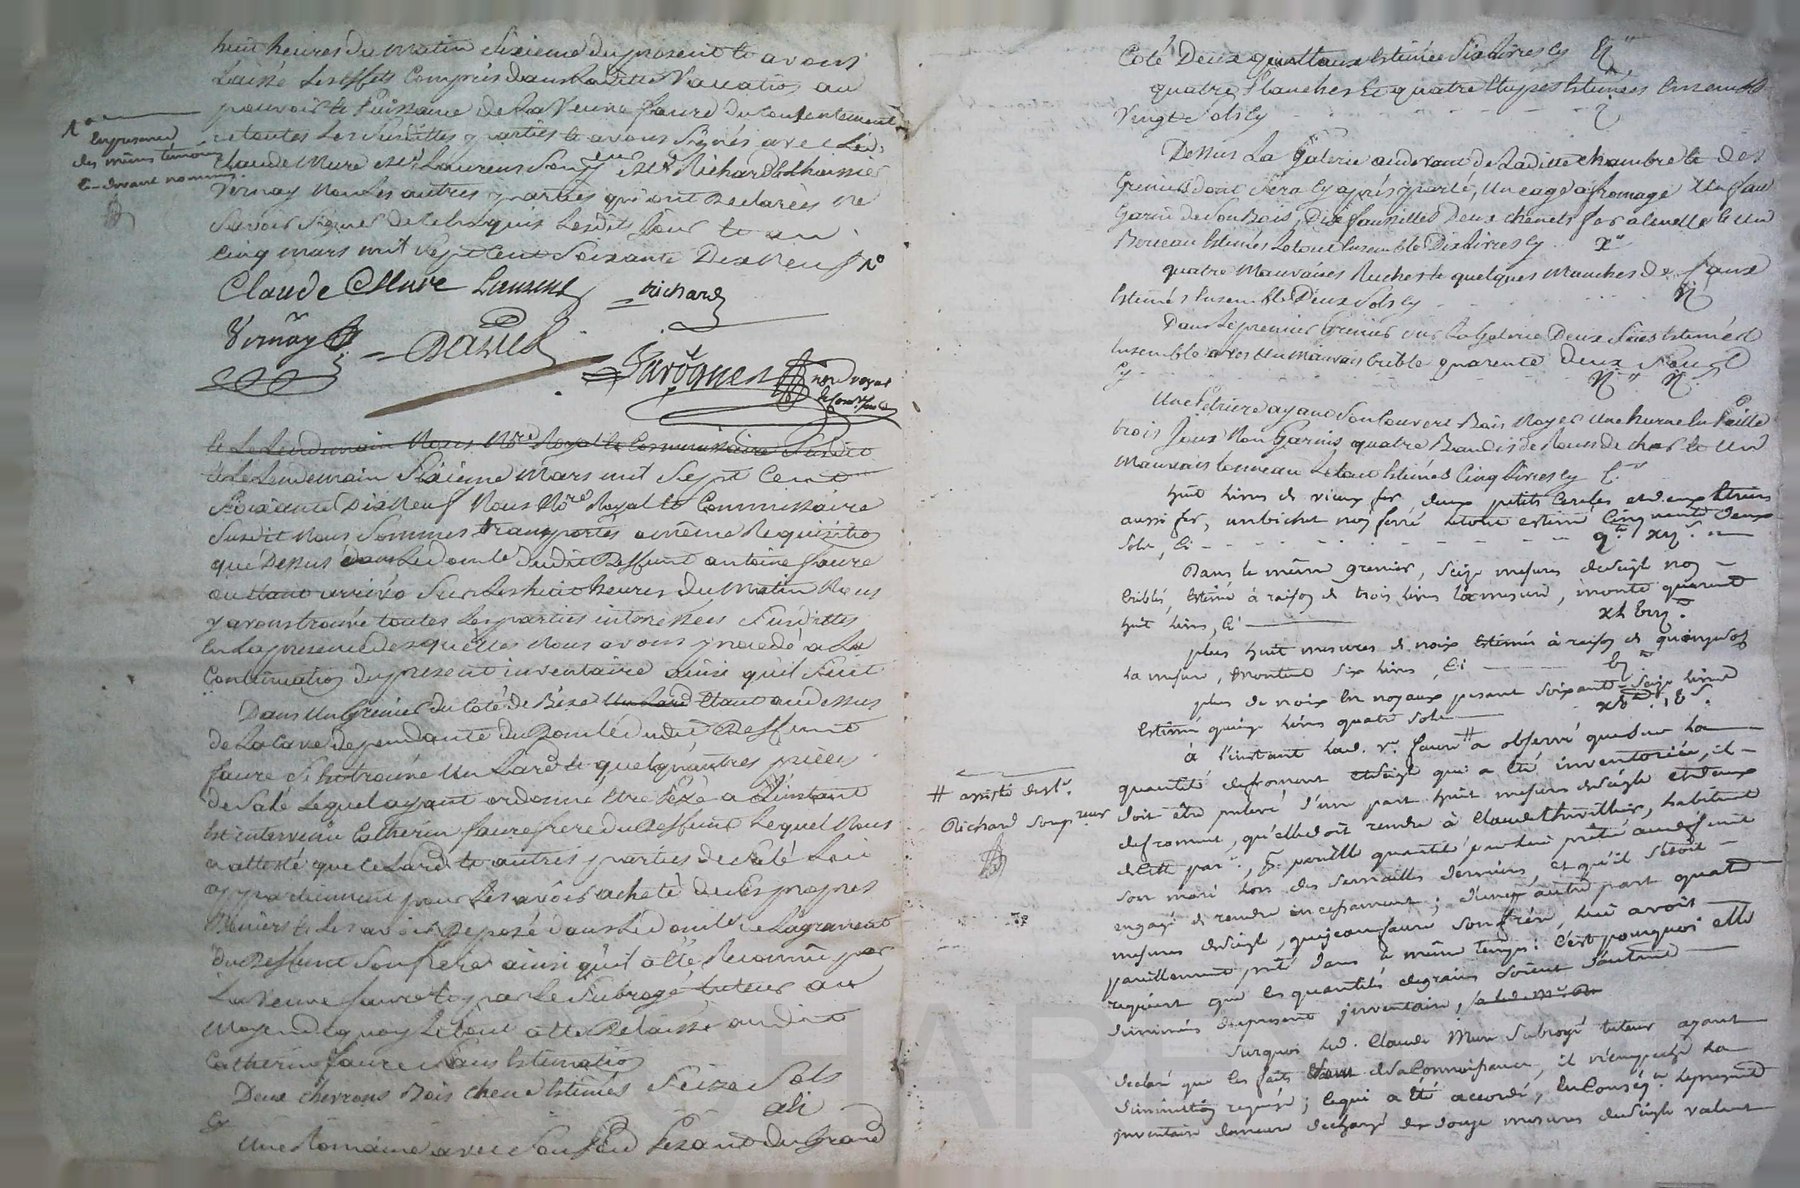 huit heures du matin sixieme du present et avons
laissé les effets compris dans la ditte vacation au
pouvoir et puissance de la veuve faure du consentement
de toutes les susdittes parties et avons signés avec led.
Claude Mure Laurens Richard
Vernay non les autres parties qui ont declarées ne
savoir signer de ce enquis lesdit jour et an
cinq mars mil sept cent soixante dix neuf 1o
1o
en presence
des mêmes témoins
ci-devant nommés
Claude Mure Laurens Richard
Vernay
not. royal
le Lendemain Nous Nore Royal et Commissaire susdit
et le Lendemain sixieme Mars mil sept cent
soixante dix neuf Nous Nore Royal et Commissaire
susdit nous sommes transportés a même Requisition
que dessus dans le domicile dudit deffunt antoine faure
ou etant arrivé sur les huit heures du matin Nous
y avons trouvé toutes les parties interessées susdittes
en la presence desquelles nous avons procedé a la
Continuation du present inventaire ainsi quil suit
Dans un Grenier du Coté de Bize un Lard etant au dessus
de la cave dependante du Domicile dudit deffunt
faure s'est trouvé un Lard et quelqu'autres pieces
de salé lequel ayant ordonné etre pezé a l'instant
est intervenu Catherin faure frere du deffunt lequel Nous
a attesté que ce lard et autres parties de salé lui
appartiennent pour les avoir acheté de ses propres
deniers et les avoir deposé dans le domicile
du deffunt son frere ainsi qu'il a été reconnu par
la veuve faure et par le subrogé tuteur au
moyen de quoy le tout a été delaissé audit
Catherin faure sans estimation
Deux chevrons Bois chene estimés seize sols
Cy
une Romaine avec son pesant du Grand
Coté Deux quintaux estimée six Livres cy
quatre planches et quatre estimées ensemble
vingt sols cy
Dessus la Galerie au devant de laditte chambre et des
Greniers dont sera cy après parlé, une cage a fromage
Garni de son Bois, dix faucilles deux chenets fer et un
Bureau estimés le tout ensemble dix livres cy x
quatre mauvaises Ruches et quelques manches de faux
estimés ensemble Deux sols cy
Dans le premier Grenier sur la Galerie Deux estimées
ensemble avec un mauvais crible quarente deux sous
cy
une petriere ayant son couvert Bois noyer une en paille
trois Joux non Garnis quatre Bandes de Roues de char et un
mauvais tonneau le tout estimés Cinq Livres cy
huit livres de vieux fer, deux petits cercles et deux
aussi fer, un bichet non ferré, le tout estimé cinquante deux
sols, Ci
Dans le même grenier, seize mesures de seigle non
criblé, estimé à raison de trois livres la mesure, monte quarante
huit livres, Ci
plus huit mesures de noix estimé à raison de quinze sols
la mesure, montent six livres, Ci
plus de noix en noyaux pesant soixante seize livres
estimé quinze livres quatre sols
à l'instant lad. ve. faure # a observé que sur la
quantité de froment et seigle qui a été inventoriée, il
doit être prélevé d'une part huit mesures de seigle et deux
de froment, qu'elle doit rendre à Claude thivillier, habitant
de cette parse., pr. pareille quantité par lui prêté au deffunt
son mari lors des semailles dernieres, et qu'il s'etoit
engagé de rendre incessament ; d'une autre part quatre
mesures de seigle, que jean faure son frere, lui avoit
pareillement prêté dans le même temps: C'est pourquoi elle
requiert que les quantités de grains soient d'autant
diminués du present inventaire,
# assisté de Sr.
Richard son preur
surquoi led. Claude Mure subrogé tuteur ayant
déclaré que les faits etant de sa connoissance, il n'empeche la
diminution requise; ce qui a été accordé, en conséqce. le present
inventaire demeure déchargé de douze mesures de seigle valant